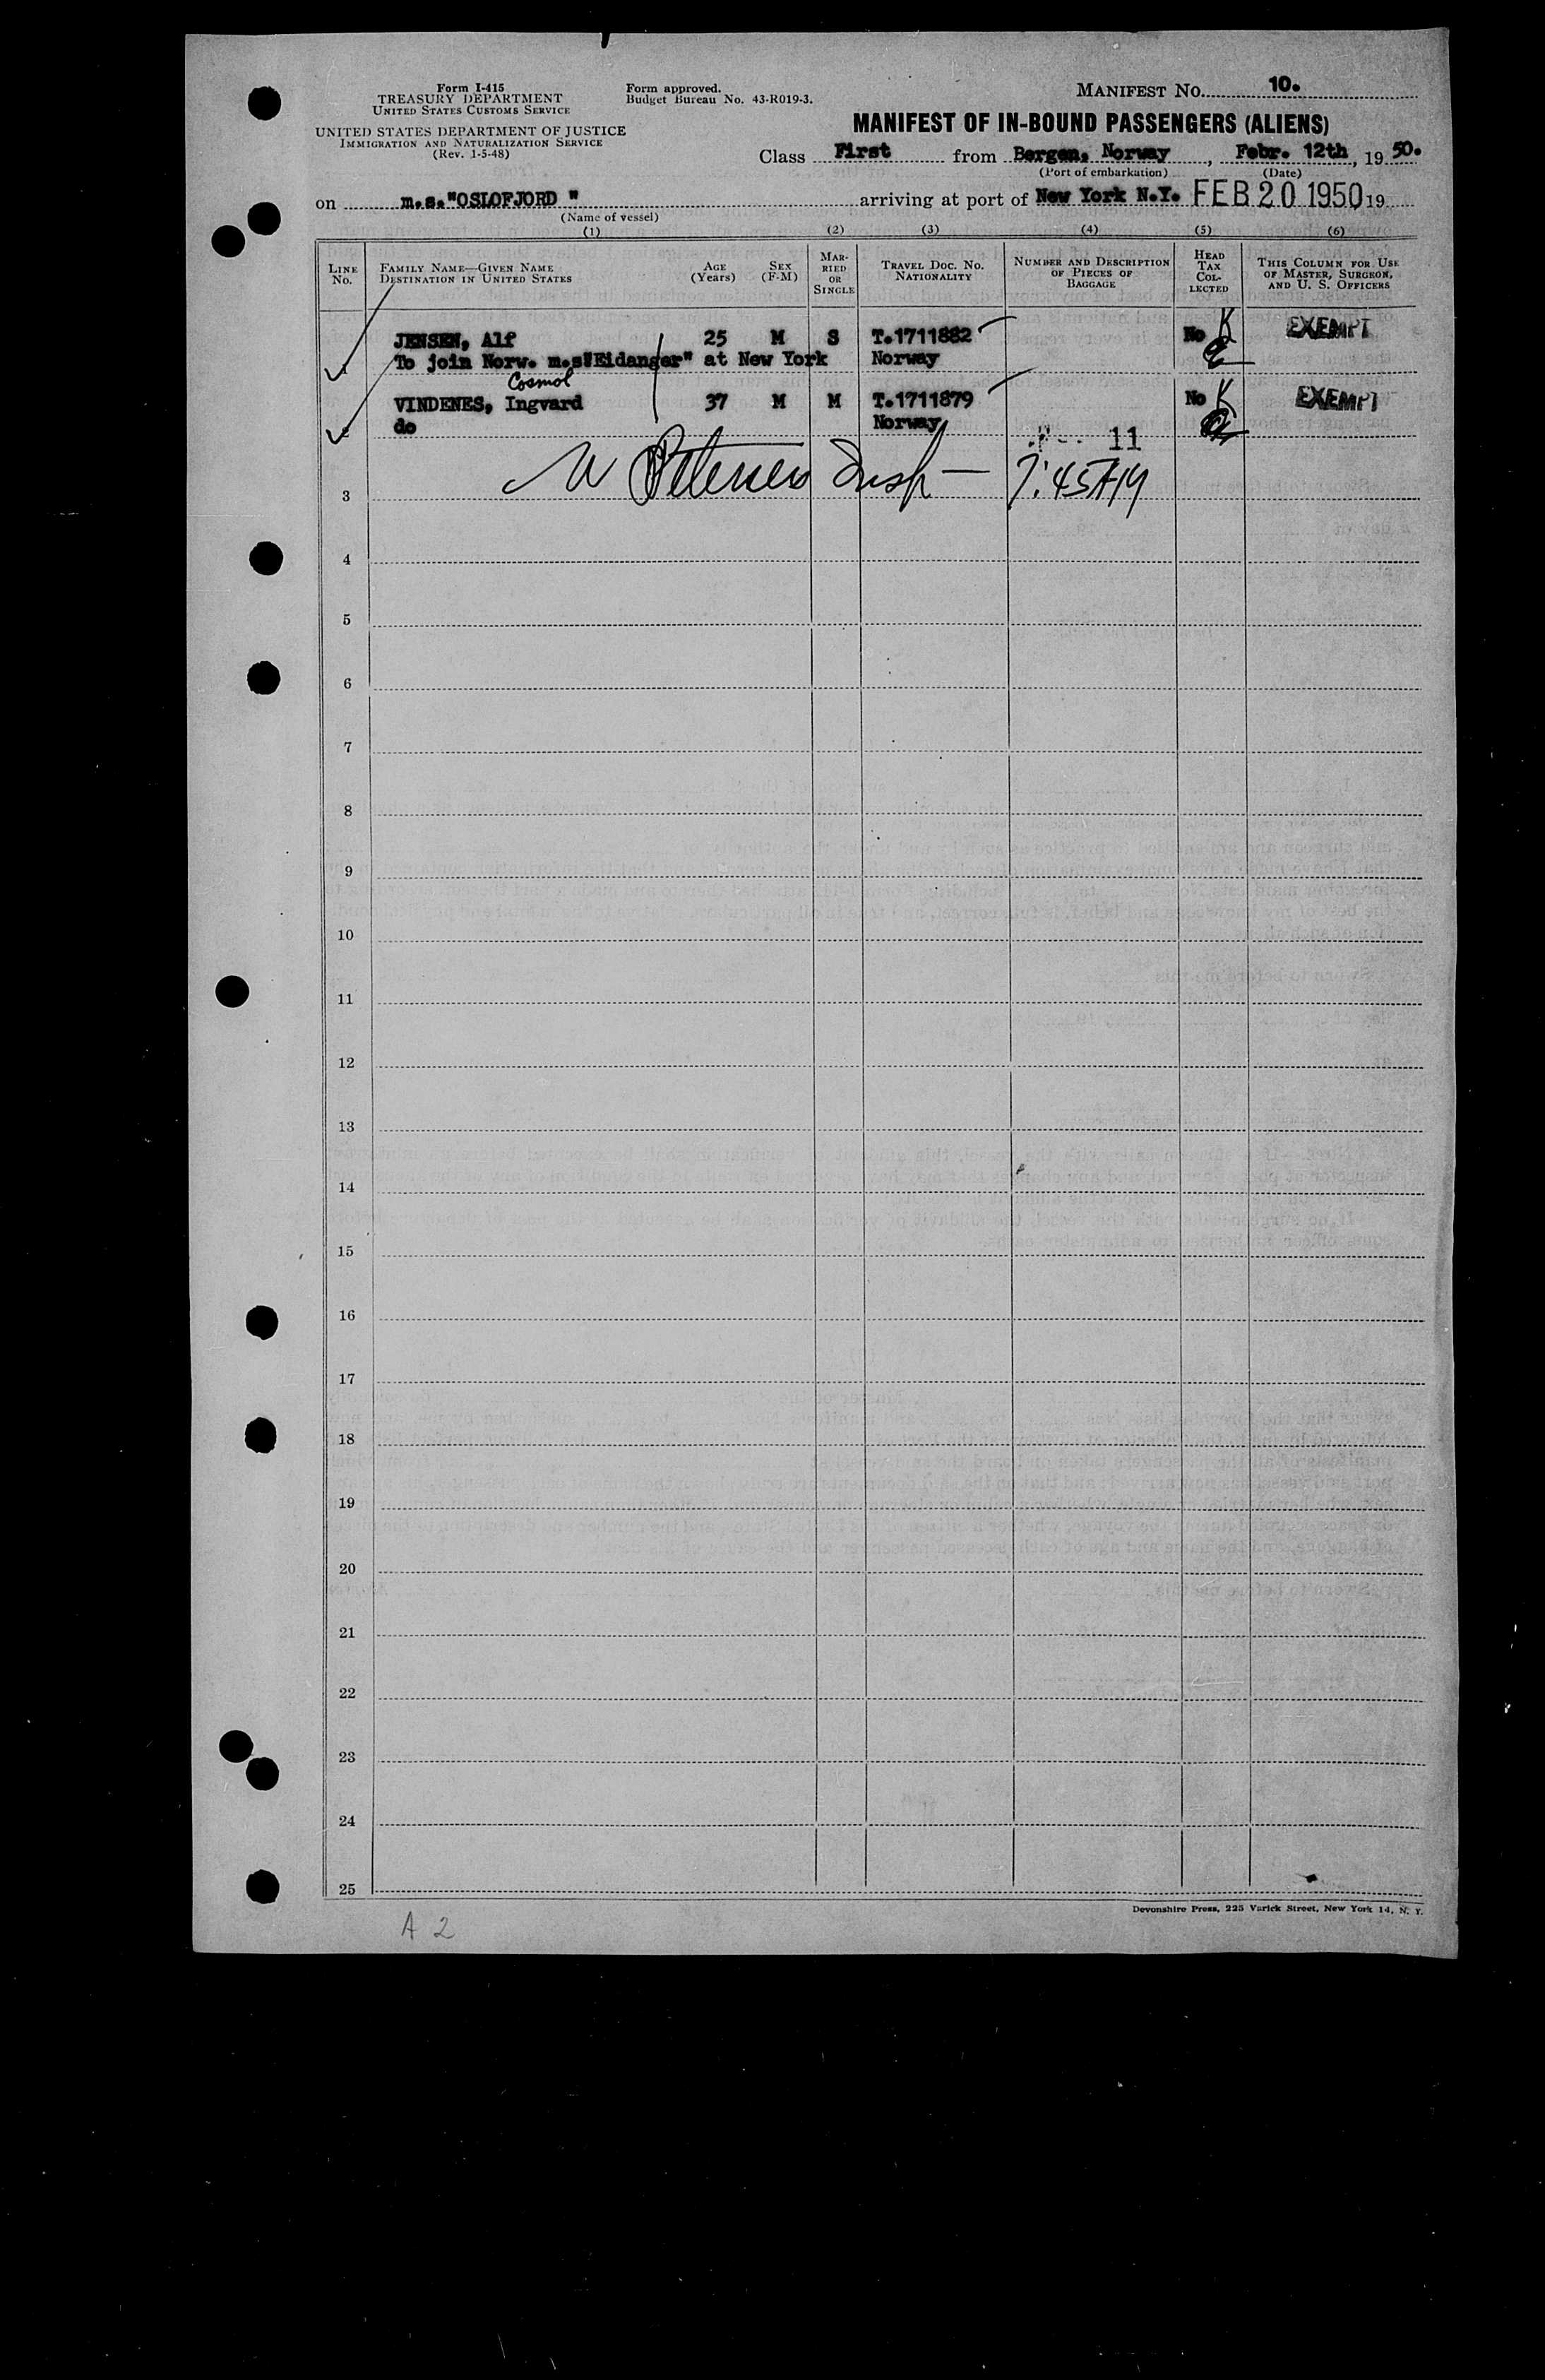 Form I-415
TREASURY DEPARTMENT
UNITED STATES CUSTOMS SERVICE
UNITED STATES DEPARTMENT OF JUSTICE
IMMIGRATION AND NATURALIZATION SERVICE
(Rev. 1-5-48)
Form approved.
Budget Bureau No. 43-R019-3.
MANIFEST NO. 10.
MANIFEST OF IN-BOUND PASSENGERS (ALIENS)
Class First from Bergen, Norway, Febr. 12th, 19 50.
(Port of embarkation) (Date)
on m.s."OSLOFJORD " arriving at port of New York N.Y. FEB 20 1950 19
(Name of vessel)
(1) (2) (3) (4) (5) (6)
LINE NO. FAMILY NAME—GIVEN NAME DESTINATION IN UNITED STATES AGE (Years) SEX (F-M) MARRIED OR SINGLE TRAVEL DOC. NO. NATIONALITY NUMBER AND DESCRIPTION OF PIECES OF BAGGAGE HEAD TAX COLLECTED THIS COLUMN FOR USE OF MASTER, SURGEON, AND U. S. OFFICERS
JENSEN, Alf 25 M S T.1711882 No EXEMPT
To join Norw. m.s"Eidanger" at New York Norway
Cosmol
VINDENES, Ingvard 37 M M T.1711879 No EXEMPT
do Norway
11
Petersen Insp —
3
4
5
6
7
8
9
10
11
12
13
14
15
16
17
18
19
20
21
22
23
24
25
Devonshire Press, 225 Varick Street, New York 14, N. Y.
A 2